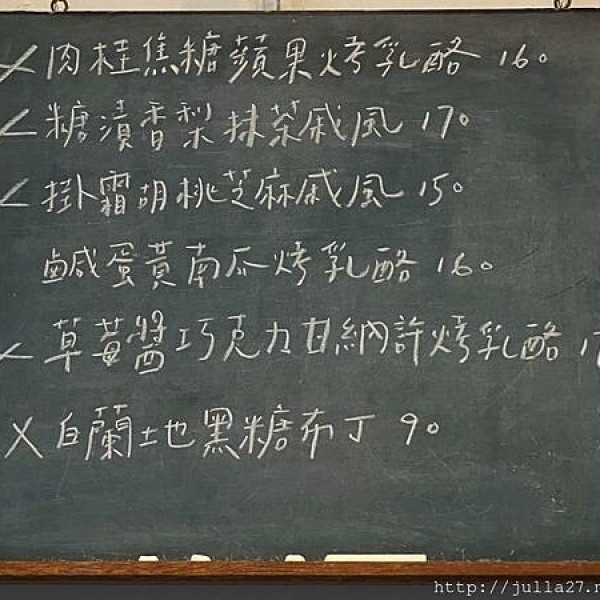 ✓肉桂焦糖蘋果烤乳酪 160
✓糖漬香梨抹茶戚風 170
✓掛霜胡桃芝麻戚風 150
鹹蛋黃南瓜烤乳酪 160
✓草莓醬巧克力甘納許烤乳酪
X白蘭地黑糖布丁 90
http://julla27.